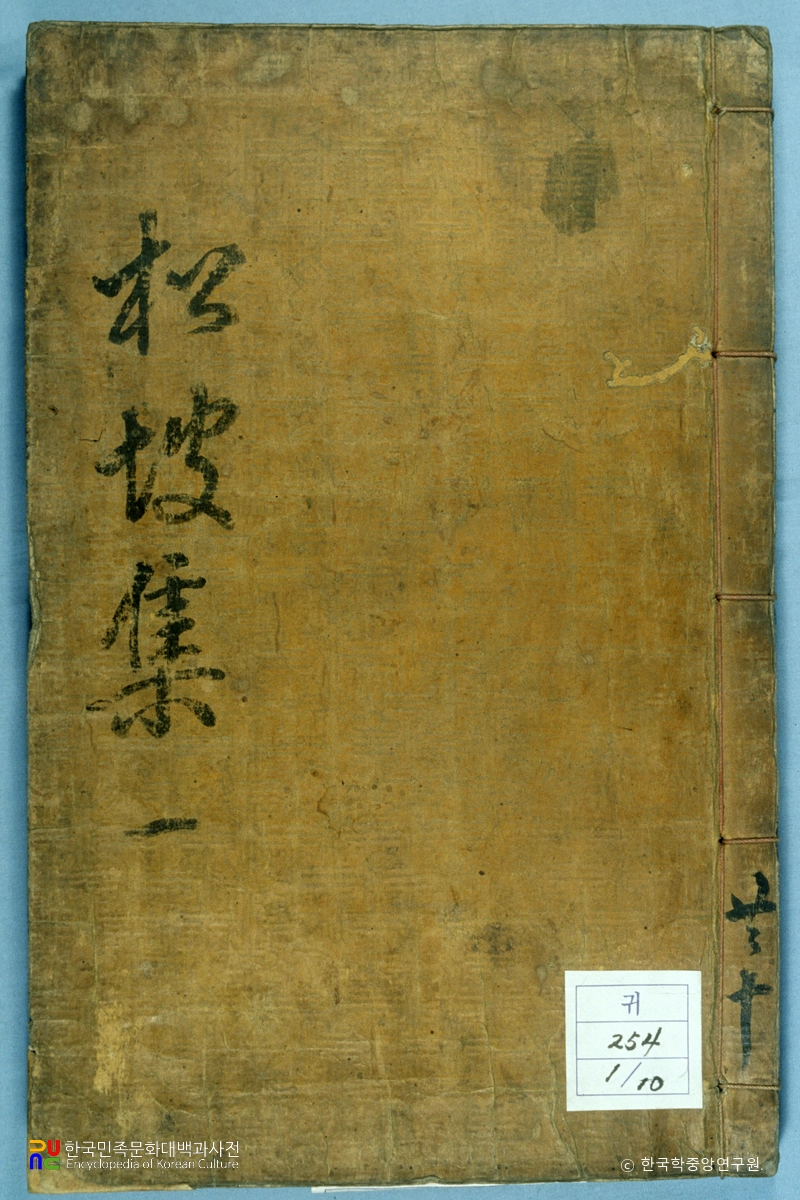 松坡集 一
共十
귀
254
1/10
한국민족문화대백과사전
Encyclopedia of Korean Culture
© 한국학중앙연구원